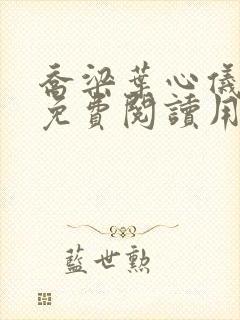 喬梁葉心儀
免費閱讀用
藍世勲